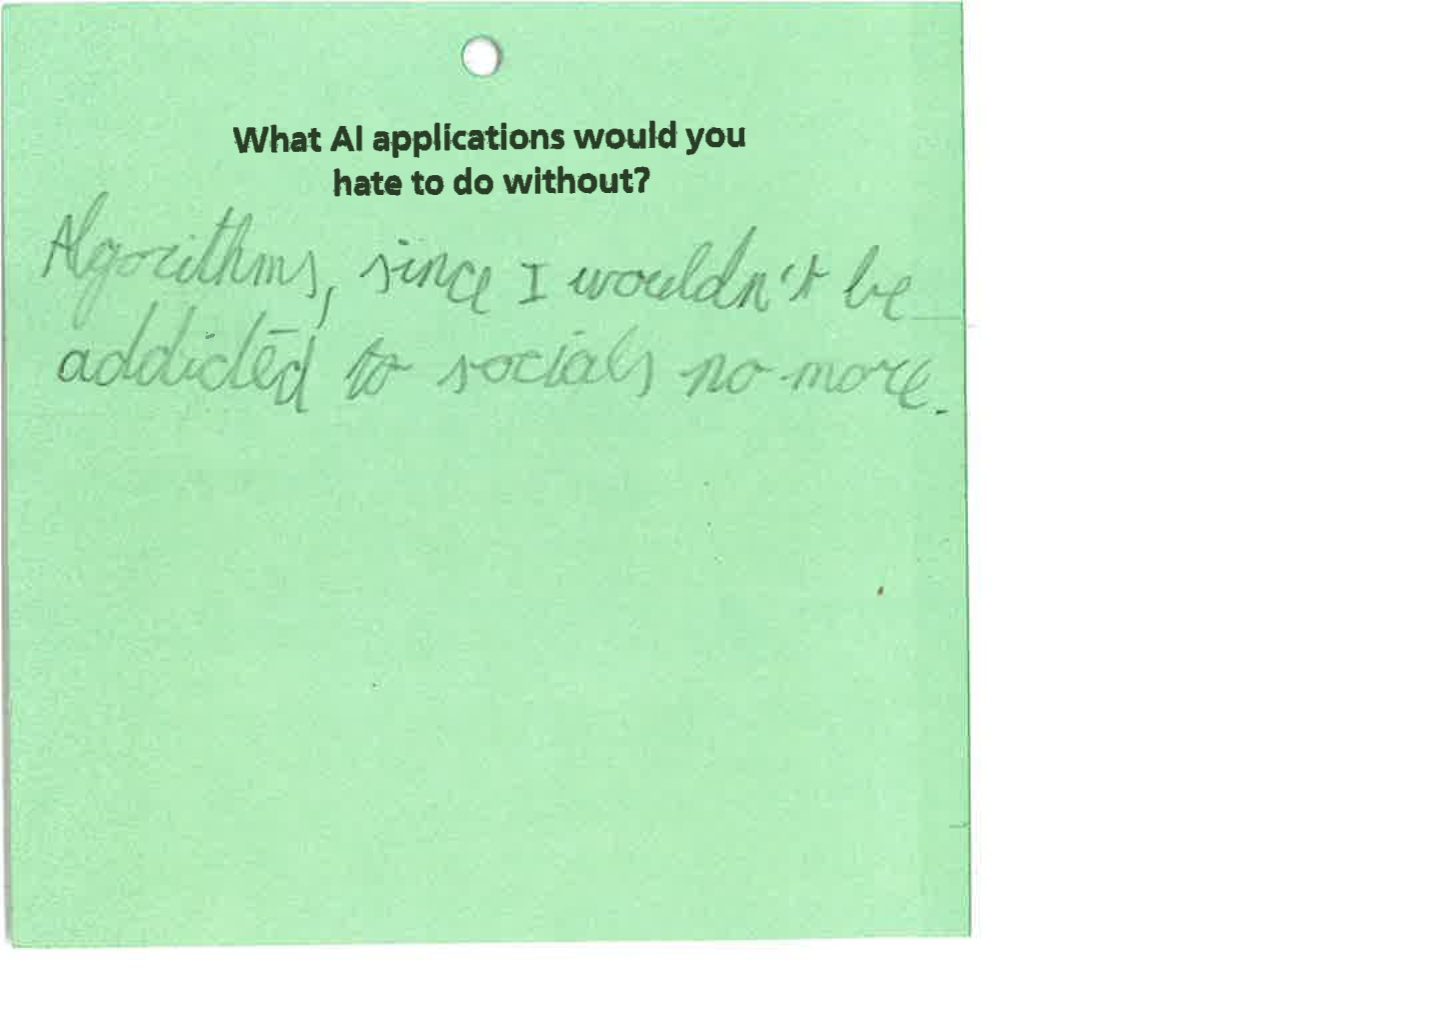 What AI applications would you
hate to do without?
Algorithms, since I wouldn't be
addicted to socials no more.